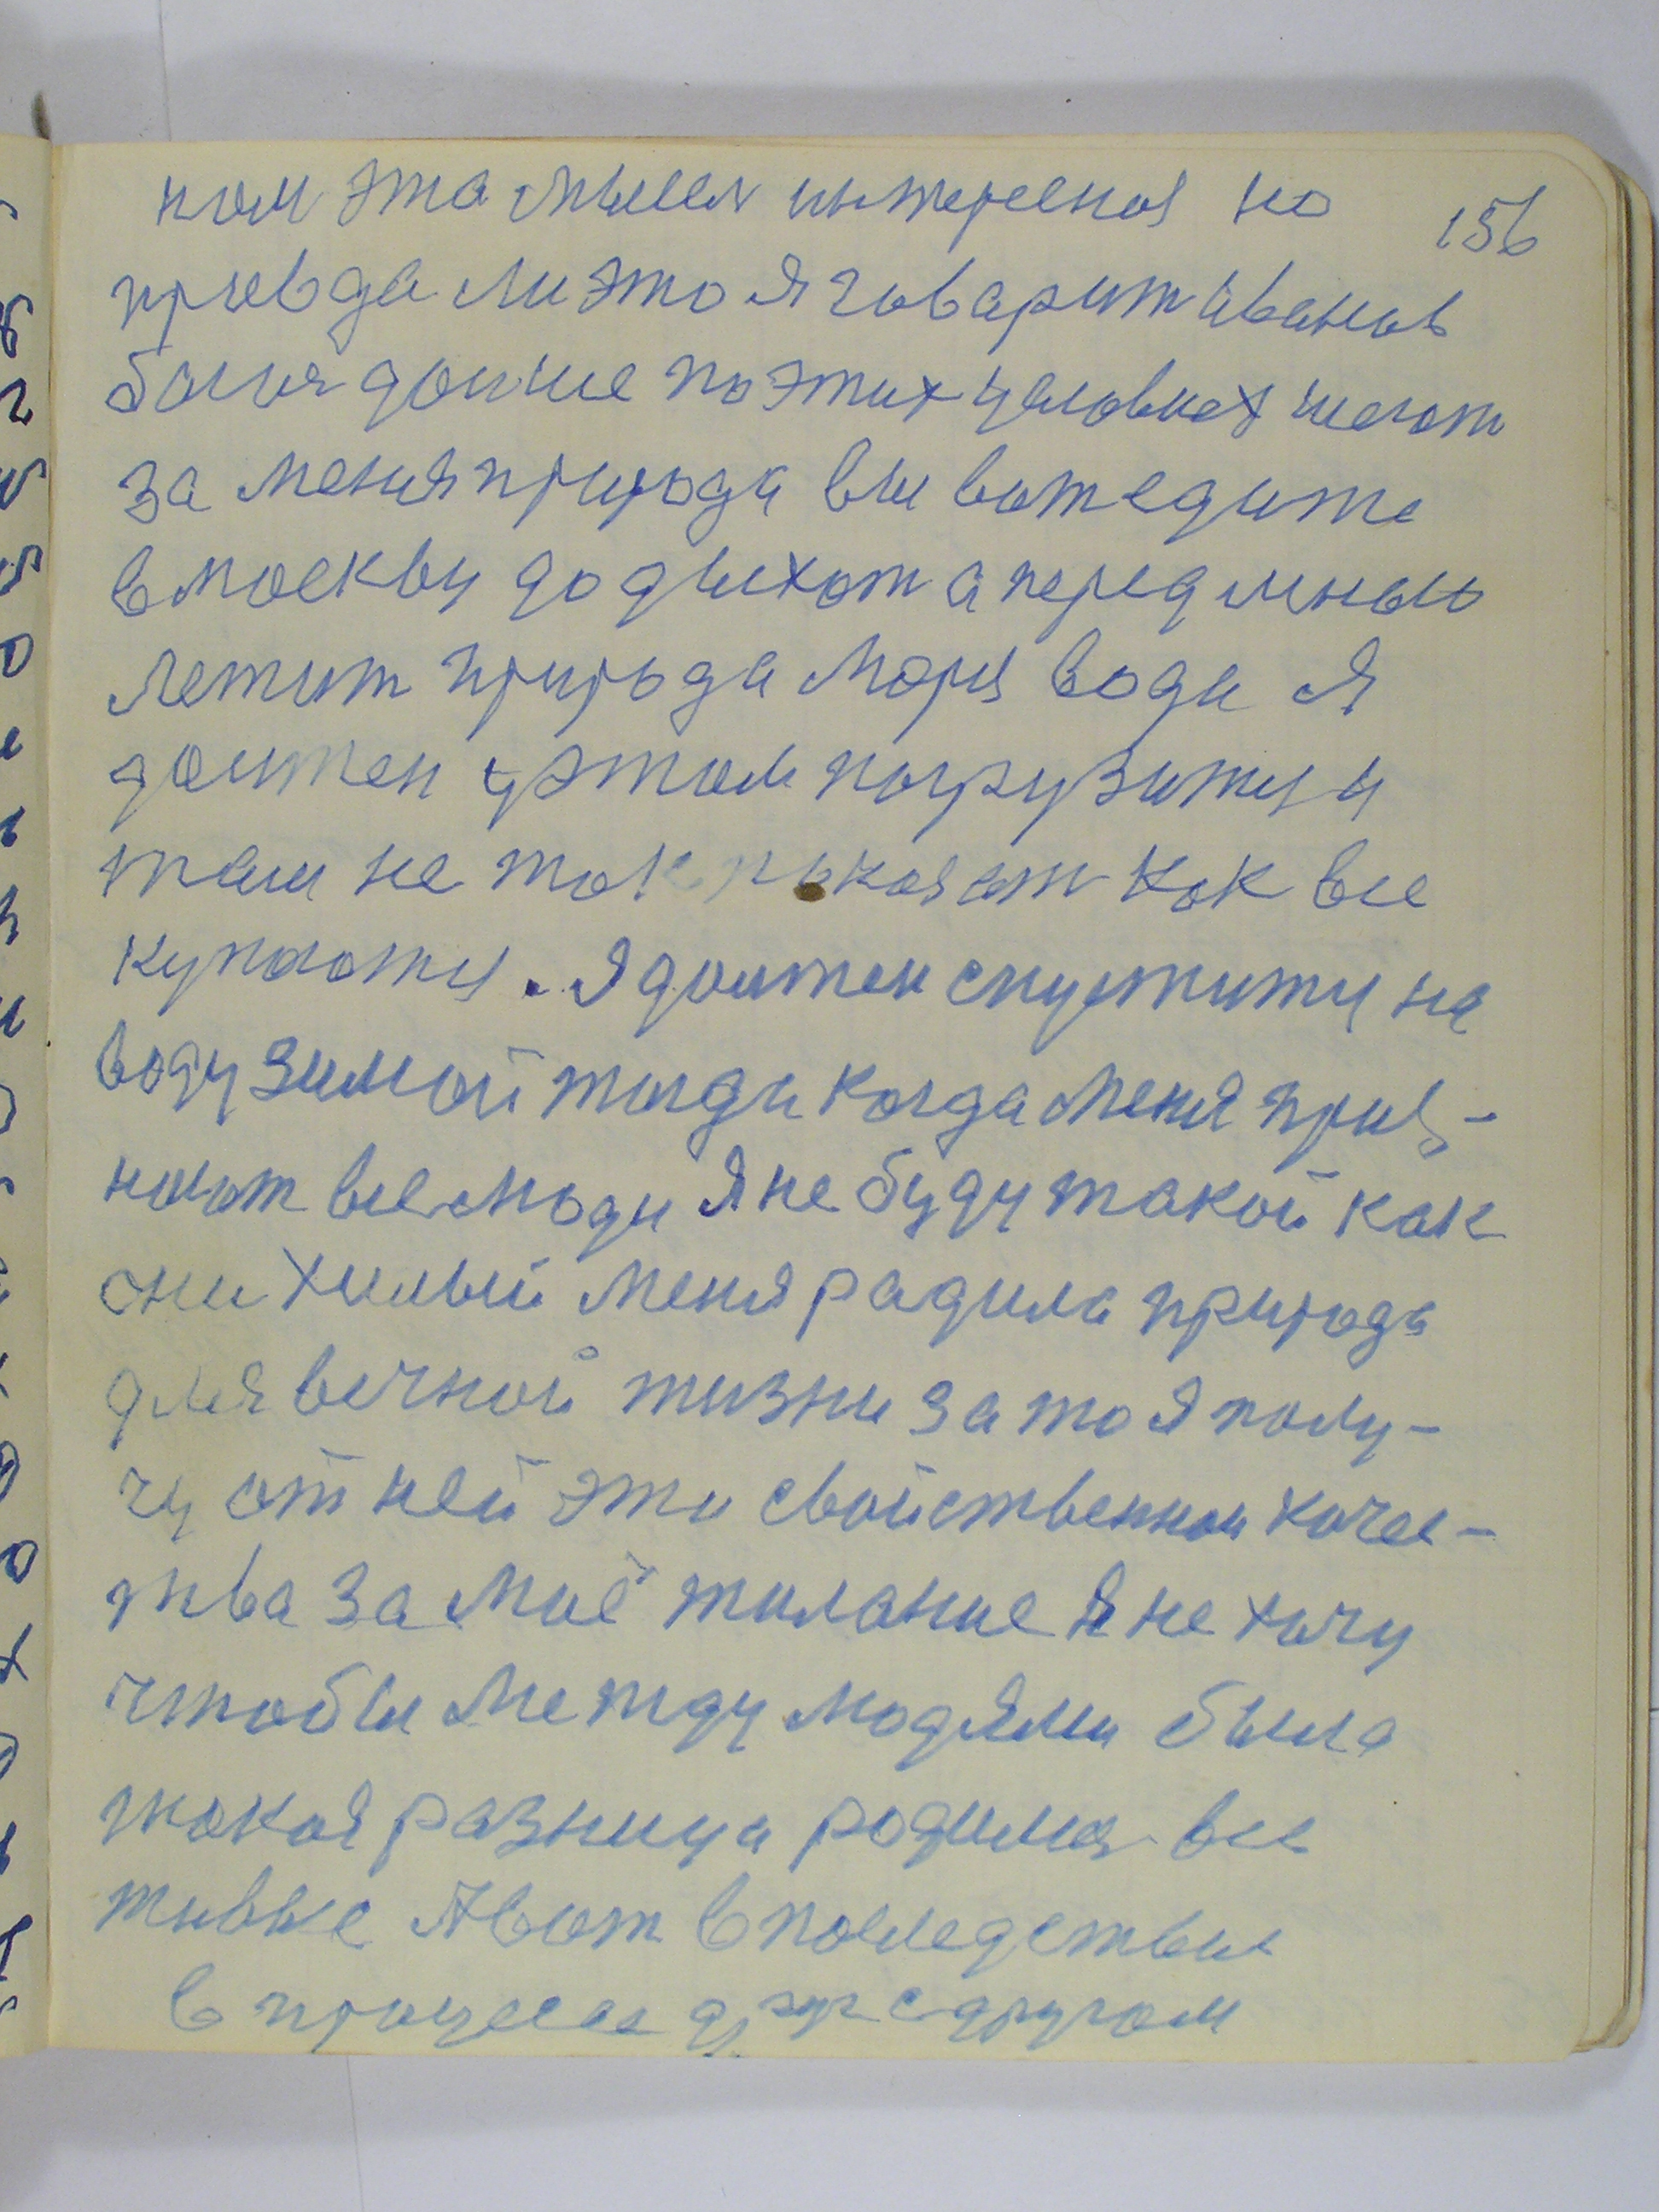 нам эта мысел интересная но 156
правда ли это я говарит иванов
болиядание по этих условиех
за меня природа вы вотедите
в москву до дыхот а перед мною
летит природа моря вода я
должен у этом погрузитця
там не так как все
купаютця. Я должен спуститця на
воду зимой тогда когда меня приз-
нают все люди Я не буду такой как
они хилый меня радила природа
для вечной жизни за то я полу-
чу от ней эти свойственнои качес-
тва за моё жилание я не хочу
чтобы между людями была
такая разница родилися все
живые А вот в последствие
в процессе друг с другом